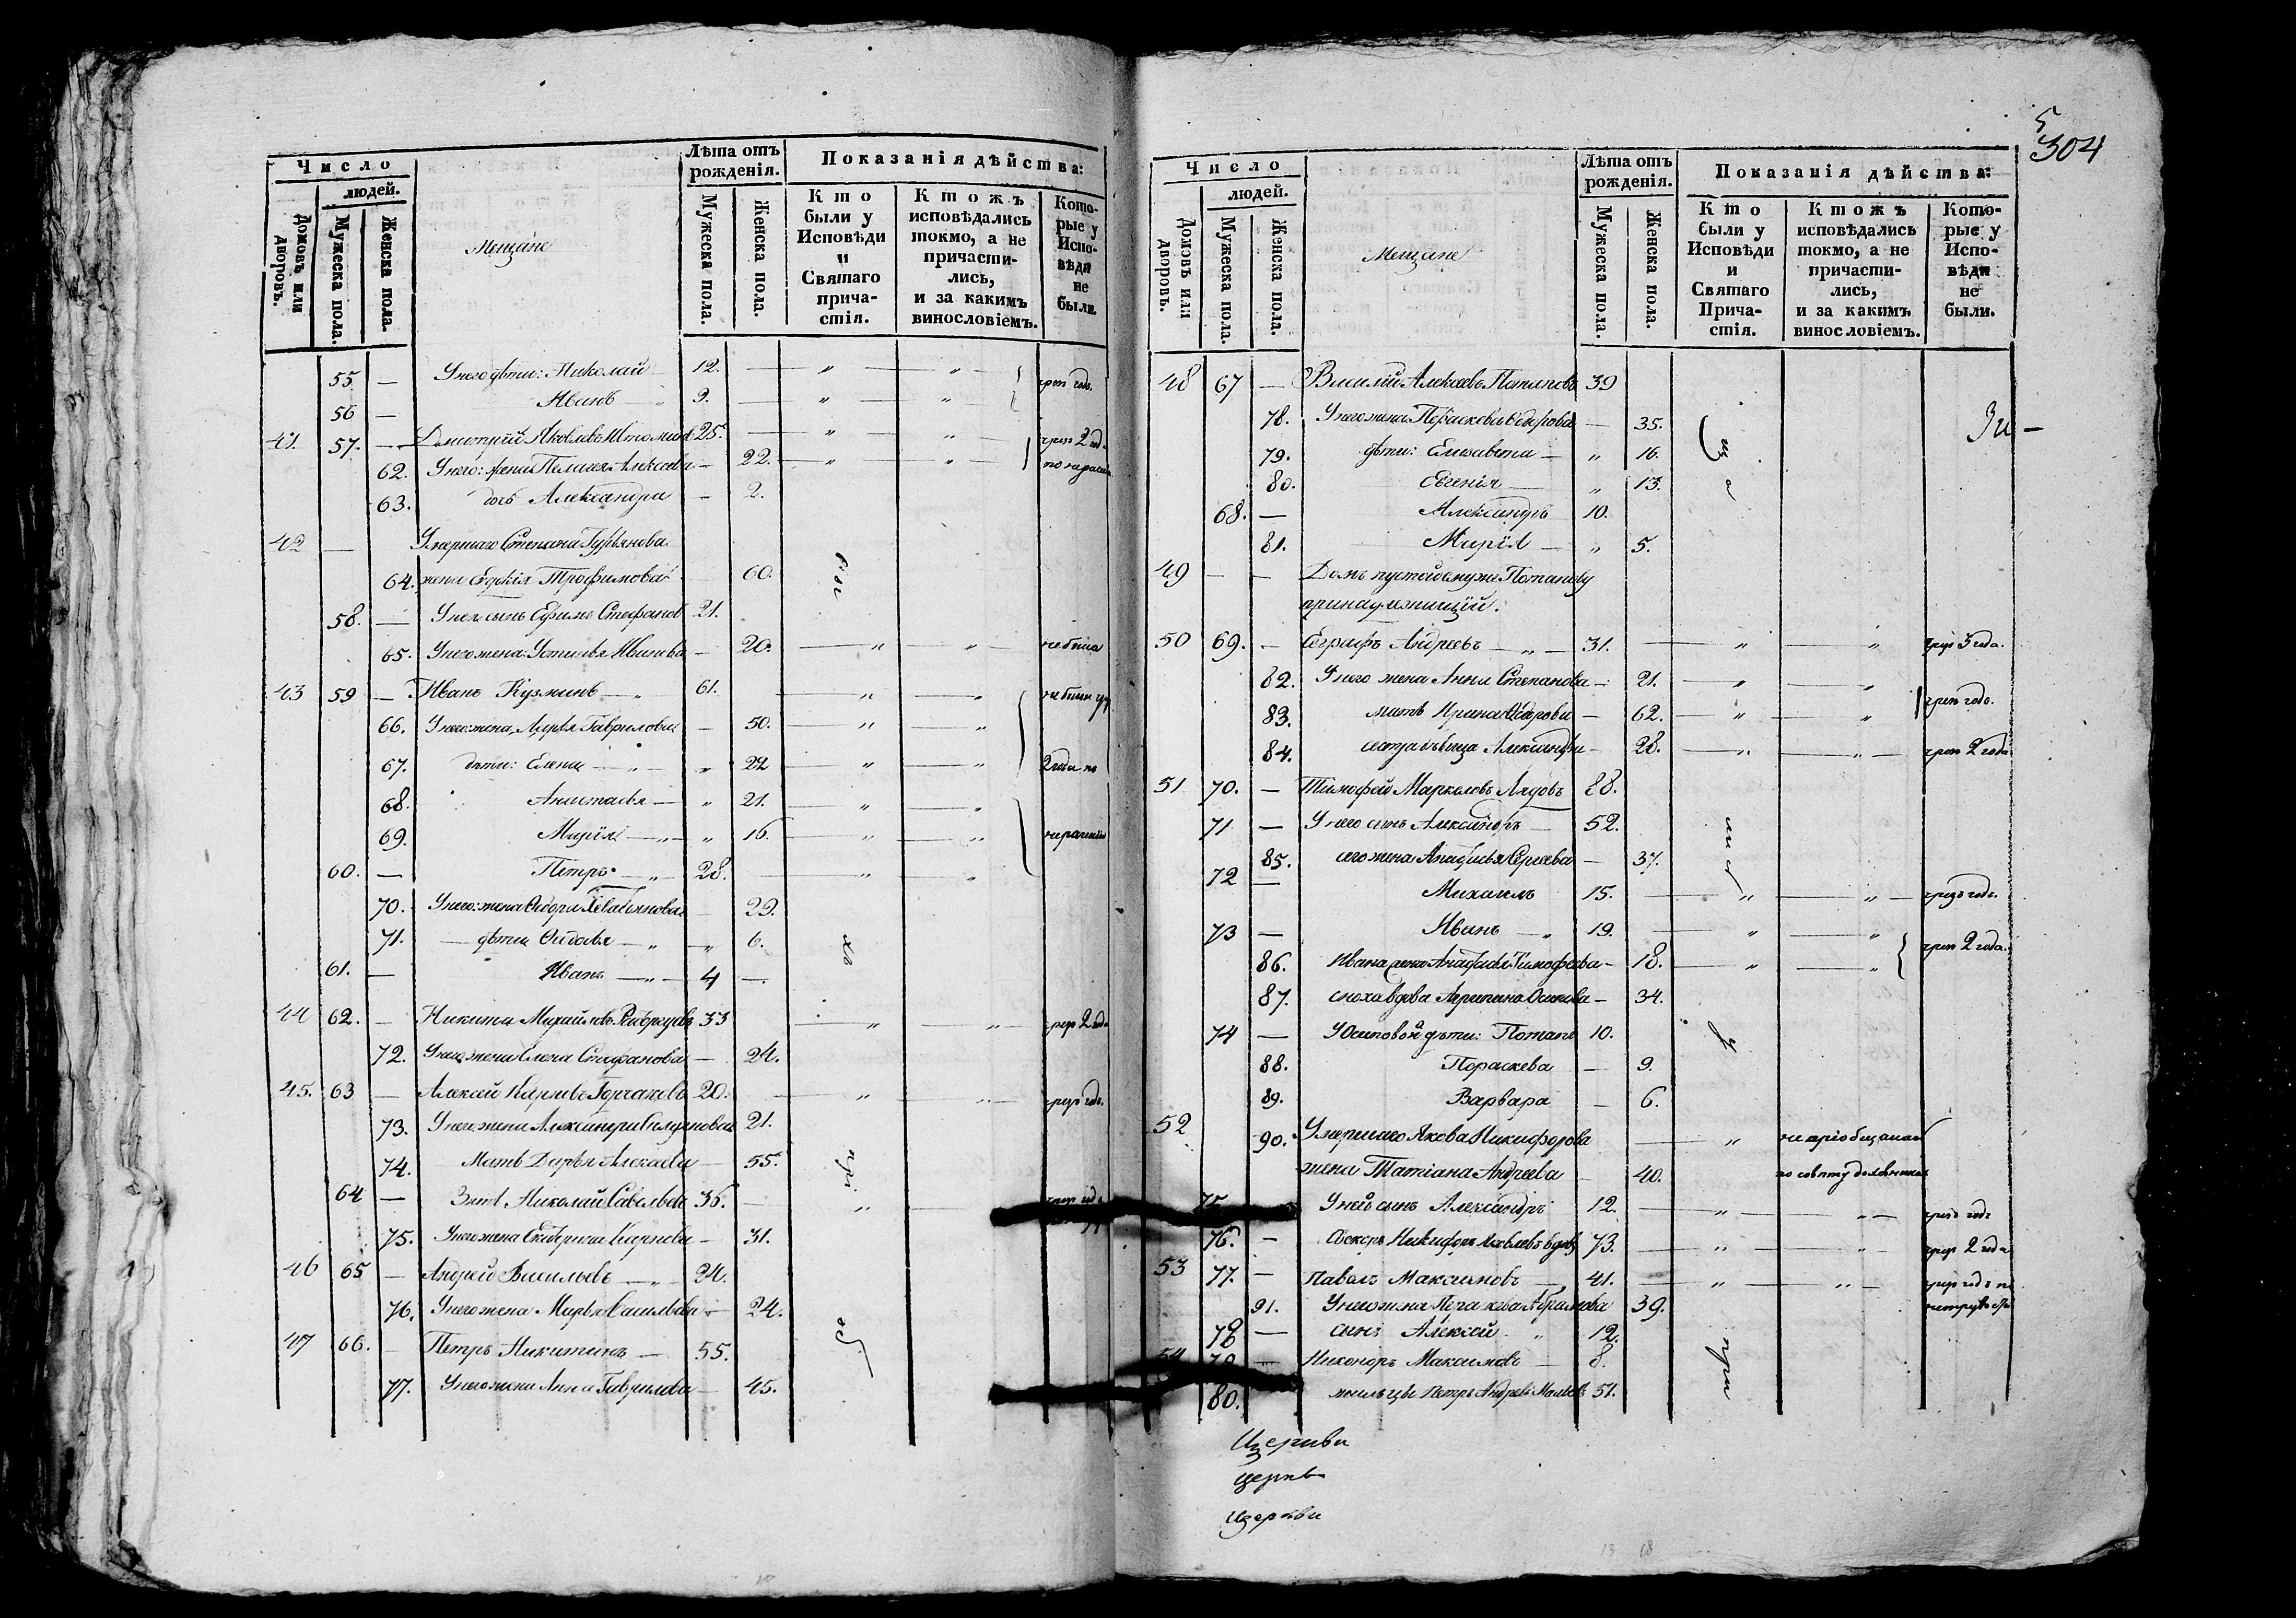 Число
людей.
Домовъ или дворовъ.
Мужеска пола.
Женска пола.
Мещане
Лѣта отъ рожденія.
Мужеска пола.
Женска пола.
Показанія дѣйства:
Кто были у Исповѣди и Святаго причастія.
Ктожъ исповѣдались токмо, а не причастились, и за какимъ винословіемъ.
Которые у Исповѣди не были.
55 — У него дѣти: Николай 12. — „ — „ —
56 — Иванъ „ 9. — „ „
41 57. — Дмитрій Яковлевъ 25. — „ „ 2 год
62. У него: жена Пелагея Алексеева — 22. — „ — „
63. дочь Александра — 2.
42 — Умершаго Степана Гурьянова
64. жена Трофимова 60.
58. — У нея сынъ Ефимъ Стефановъ 21.
65. У него жена Устинья Иванова — 20. — „ „
43 59 — Иванъ Кузминъ — „ 61. — „ — „
66. У него жена Дарья Гаврилова — 50. — „ „
67. дѣти: Елена — „ — „ 22 — „ — „ 2 года по
68. Анастасья — „ 21. — „ „
69. Марія — „ — „ 16. — „ — „ нераденію
60. — Петръ — „ — 28. — „ „
70. У него жена Севастьянова 29.
71. — дѣти Авдотья — „ — „ 6.
61. — Иванъ — „ 4 —
44 62. — Никита Михайловъ 33 — „ — „ — 2 года
72. У него жена Елена Стефанова — 24.
45. 63 — Алексей Карповъ Горчаковъ 20. — „ — „ — чрезъ годъ.
73. У него жена Александра 21.
74. Мать Дарья Алексеева — 55.
64 — Зять Николай Савельевъ 36. — „
75. У него жена Екатерина Карпова — 31.
46 65 — Андрей Васильевъ — „ 24.
76. У него жена Марья Васильева — 24.
47 66. — Петръ Никитинъ — 55.
77. У него жена Анна Гаврилова — 45.
5
304
Число
людей.
Домовъ или дворовъ.
Мужеска пола.
Женска пола.
Мещане
Лѣта отъ рожденія.
Мужеска пола.
Женска пола.
Показанія дѣйства:
Кто были у Исповѣди и Святаго Причастія.
Ктожъ исповѣдались токмо, а не причастились, и за какимъ винословіемъ.
Которые у Исповѣди не были.
48 67 — Василій Алексеевъ Потаповъ 39
78. У него жена Параскева Федорова — 35.
79. дѣти: Елизавета — „ 16.
80. Евгенія — „ 13.
68. — Александръ 10.
81. Марія — „ 5.
49 — — Домъ пустой онному Потапову
принадлежащій.
50 69. — Еграфъ Андреевъ — „ — 31. — „ — „ чрезъ 3 года.
82. У него жена Анна Степанова — 21. — „ — „ чрезъ годъ.
83. мать Ирина Федорова — 62. — „ — „
84. сестра дѣвица Александра — 28. — „ — „ — чрезъ 2 года
51 70. — Тимофей Маркеловъ Лядовъ 88.
71 — У него сынъ Александръ — 52.
85. его жена Анафисья Сергеева — 37.
72 — Михаилъ 15. — „ — „ — чрезъ годъ.
73 — Иванъ — „ 19. — „ — „ чрезъ 2 года.
86. Ивана жена Тимофеева — 18. — „ — „
87. сноха вдова Агрипина Осипова — 34.
74 — У Осиповой дѣти: Потапъ 10.
88. Пораскева — 9.
89. Варвара — 6.
52 90. Умершаго Якова Никифорова — „
жена Татіана Андреева — 40. по совѣту
75 У ней сынъ Александръ 12. — „ — „ — чрезъ годъ
76. — Свекоръ Никифоръ Яковлевъ вдовъ 73. — „ — „ чрезъ 2 года
53 77. — Павелъ Максимовъ — „ 41. — „ — „ — чрезъ годъ
91. У него жена 39.
78 — сынъ Алексей „ 12.
54 79 — Никоноръ Максимовъ — 8.
80. жилецъ Петръ Андреевъ 51.
Церкви
церкв
церкви